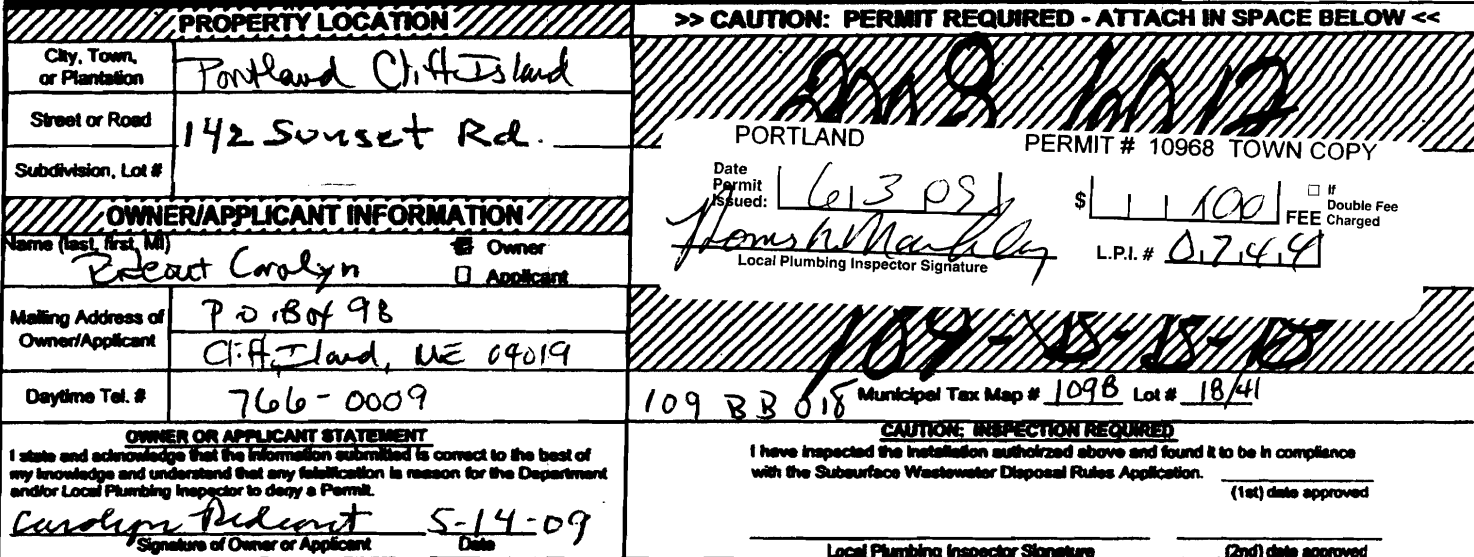 PROPERTY LOCATION
City, Town, or Plantation
Portland Cliff Island
Street or Road
142 Sunset Rd.
Subdivision, Lot #
OWNER/APPLICANT INFORMATION
Name (last, first, MI)
Carolyn
Owner
Applicant
Mailing Address of Owner/Applicant
P.O. Box 98
Cliff Iland, ME 04019
Daytime Tel. #
766-0009
OWNER OR APPLICANT STATEMENT
I state and acknowledge that the information submitted is correct to the best of
my knowledge and understand that any falsification is reason for the Department
and/or Local Plumbing Inspector to deny a Permit.
Carolyn 5-14-09
Signature of Owner or Applicant Date
>> CAUTION: PERMIT REQUIRED - ATTACH IN SPACE BELOW <<
PORTLAND PERMIT # 10968 TOWN COPY
Date Permit Issued: 6 3 09
$ 100 FEE
If Double Fee Charged
Local Plumbing Inspector Signature
L.P.I. # 0744
109 BB 018 Municipal Tax Map # 109B Lot # 18/41
CAUTION: INSPECTION REQUIRED
I have inspected the installation authoirzed above and found it to be in compliance
with the Subsurface Wastewater Disposal Rules Application.
(1st) date approved
Local Plumbing Inspector Signature (2nd) date approved